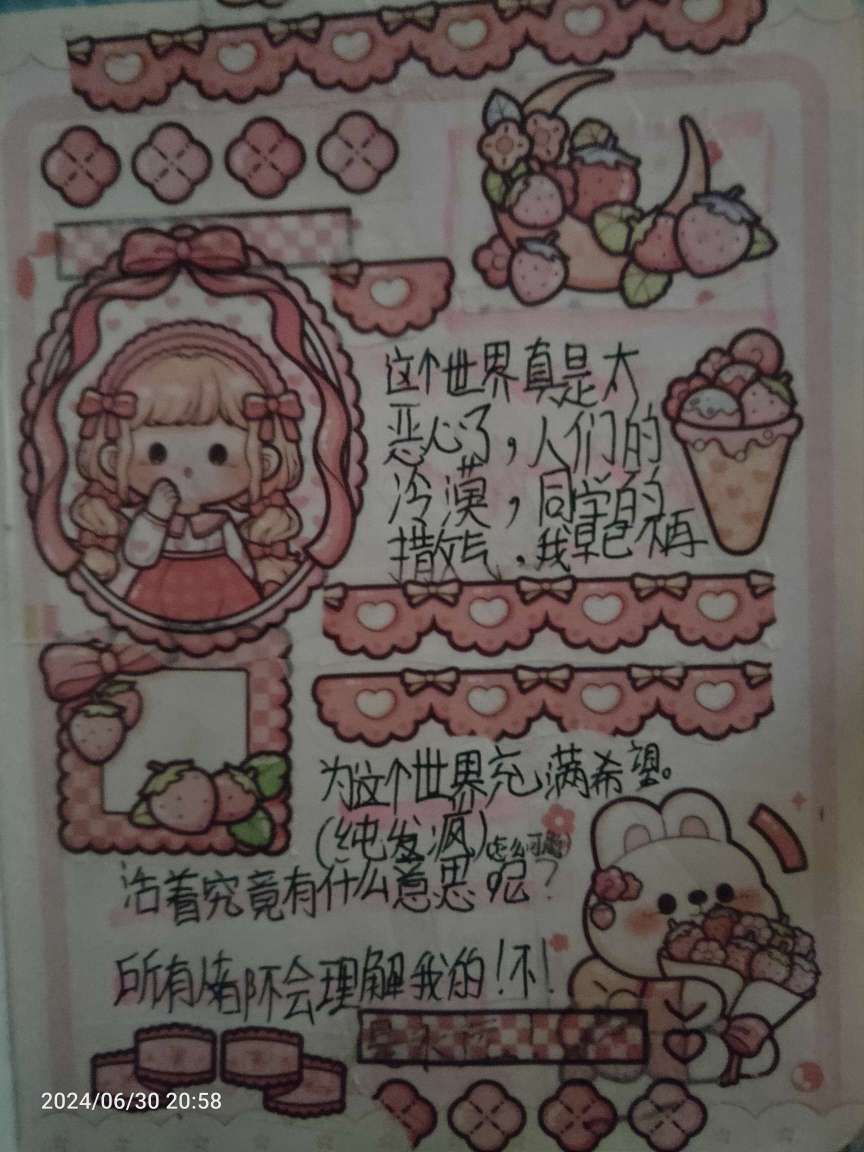 这个世界真是太
恶心了，人们的
冷漠，同学的
撒气，我早已不再
为这个世界充满希望。
(纯发疯)怎么可能
活着究竟有什么意思呢？
所有人都不会理解我的！不！
2024/06/30 20:58